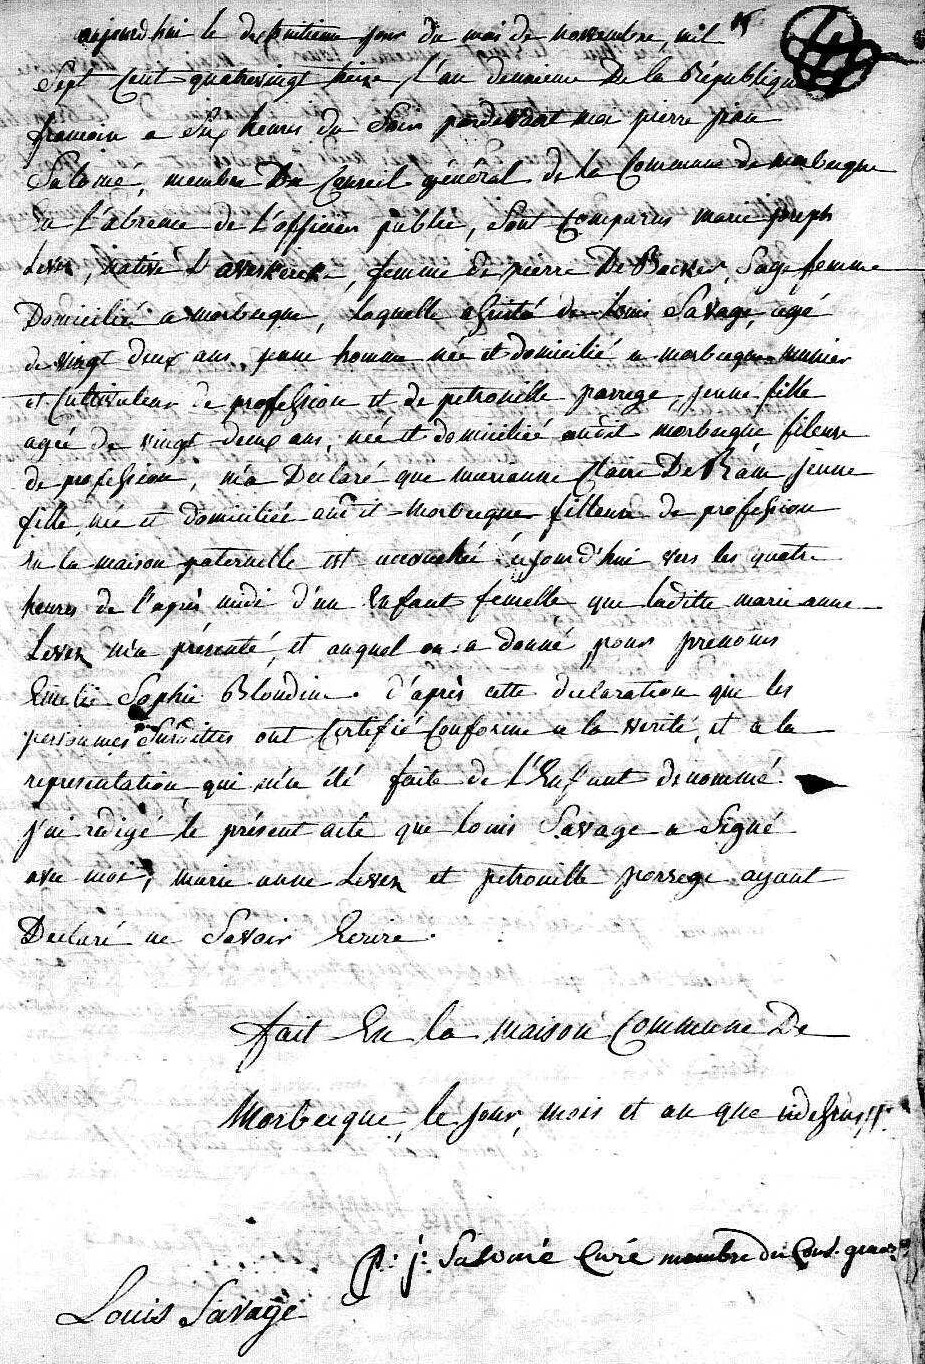 aujourdhui le dixhuitieme jour du mois de novembre, mil
Sept Cent quatrevingt treize, l'an deuxieme De la République
francoise a Six heures du Soir pardevant moi pierre jean
Salomé, membre Du Conseil général de la Commune de morbeque
En l'absence de L'officier public, Sont Comparus marie joseph
Leven, native D'averskerck, femme de pierre De Backer, Sage femme
Domiciliée a morbeque, laquelle assisté de Louis Savage, agé
de vingt deux ans, jeune homme née et domicilié a morbeque munier
et Cultivateur de profession et de petronille parrege, jeune fille
agée de vingt deux ans, née et domiciliée audit morbeque fileuse
de profession, m'a Declaré que marianne Claire De jeune
fille née et domiciliée audit Morbeque filleuse de profession
En la maison paternelle est accouchée aujourd'hui vers les quatre
heures de l'après midi d'un Enfant femelle que laditte marie anne
Leven m'a présenté, et auquel on a donné pour prenoms
Emelie Sophie Blondine. d'après cette declaration que les
personnes Surdittes ont Certifié Conforme a la verité, et a la
representation qui m'a été faite de l'Enfant denommé.
j'ai redigé le présent acte que Louis Savage a Signé
avec moi, marie anne Leven et petronille parrege ayant
Declaré ne Savoir Ecrire.
fait En la maison Commune De
Morbecque, le jour, mois et an que cidessus
p: j: Salomé Curé membre du Cons. gener
Louis Savage